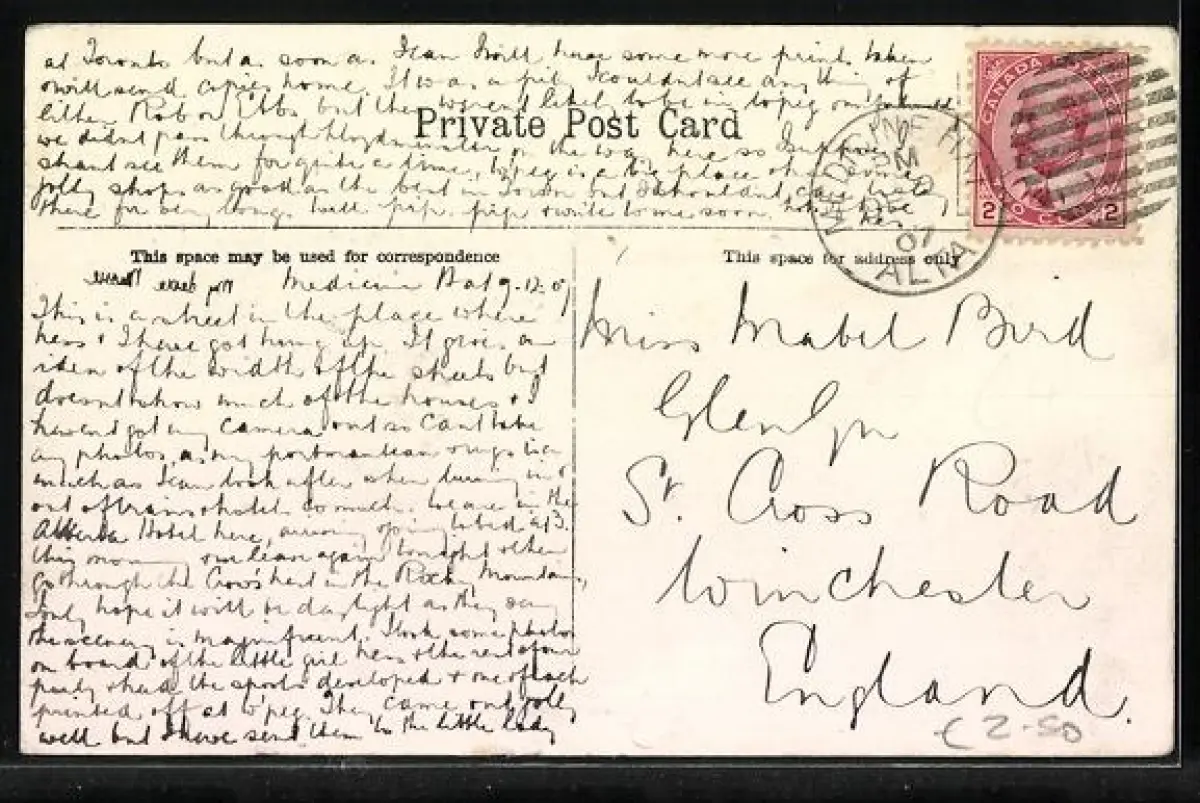 at Toronto but as soon as I can I will have some more prints taken
& will send copies home. It was a pity I couldn't see anything of
either Rob or but they weren't likely to be in w'peg on
we didn't pass through Lloydminster on the way here so I suppose I
shant see them for quite a time, W'peg is a big place &
jolly shops as good as the best in Town but I shouldn't care to
there for very long. Well pip-pip & write to me soon.
Private Post Card
This space may be used for correspondence
This space for address only
CANADA POSTAGE
2 TWO CENTS 2
MEDICINE HAT
PM
DE 9
07
ALTA
My dear
Medicine Hat 9-12-07
This is a street in the place where
Hess & I have got hung up. It gives an
idea of the width of the streets but
doesn't show much of the houses & I
haven't got my camera out so can't take
any photos, as my portmanteau & rugs is as
much as I can look after when in &
out of trains & hotels so much. We are in the
Alberta Hotel here, arriving & going to bed at 3.
this morning our train again tonight & then
go through the Crow's Nest in the Rocky Mountains,
I only hope it will be daylight as they say
the scenery is magnificent. I took some photos
on board of the little girl Hess & the rest of our
party & had the spools developed & one of each
printed off at W'peg. They came out jolly
well but I have sent them to the little lady
Miss Mabel Bird
Glenlyn
St. Cross Road
Winchester
England.
£2-50